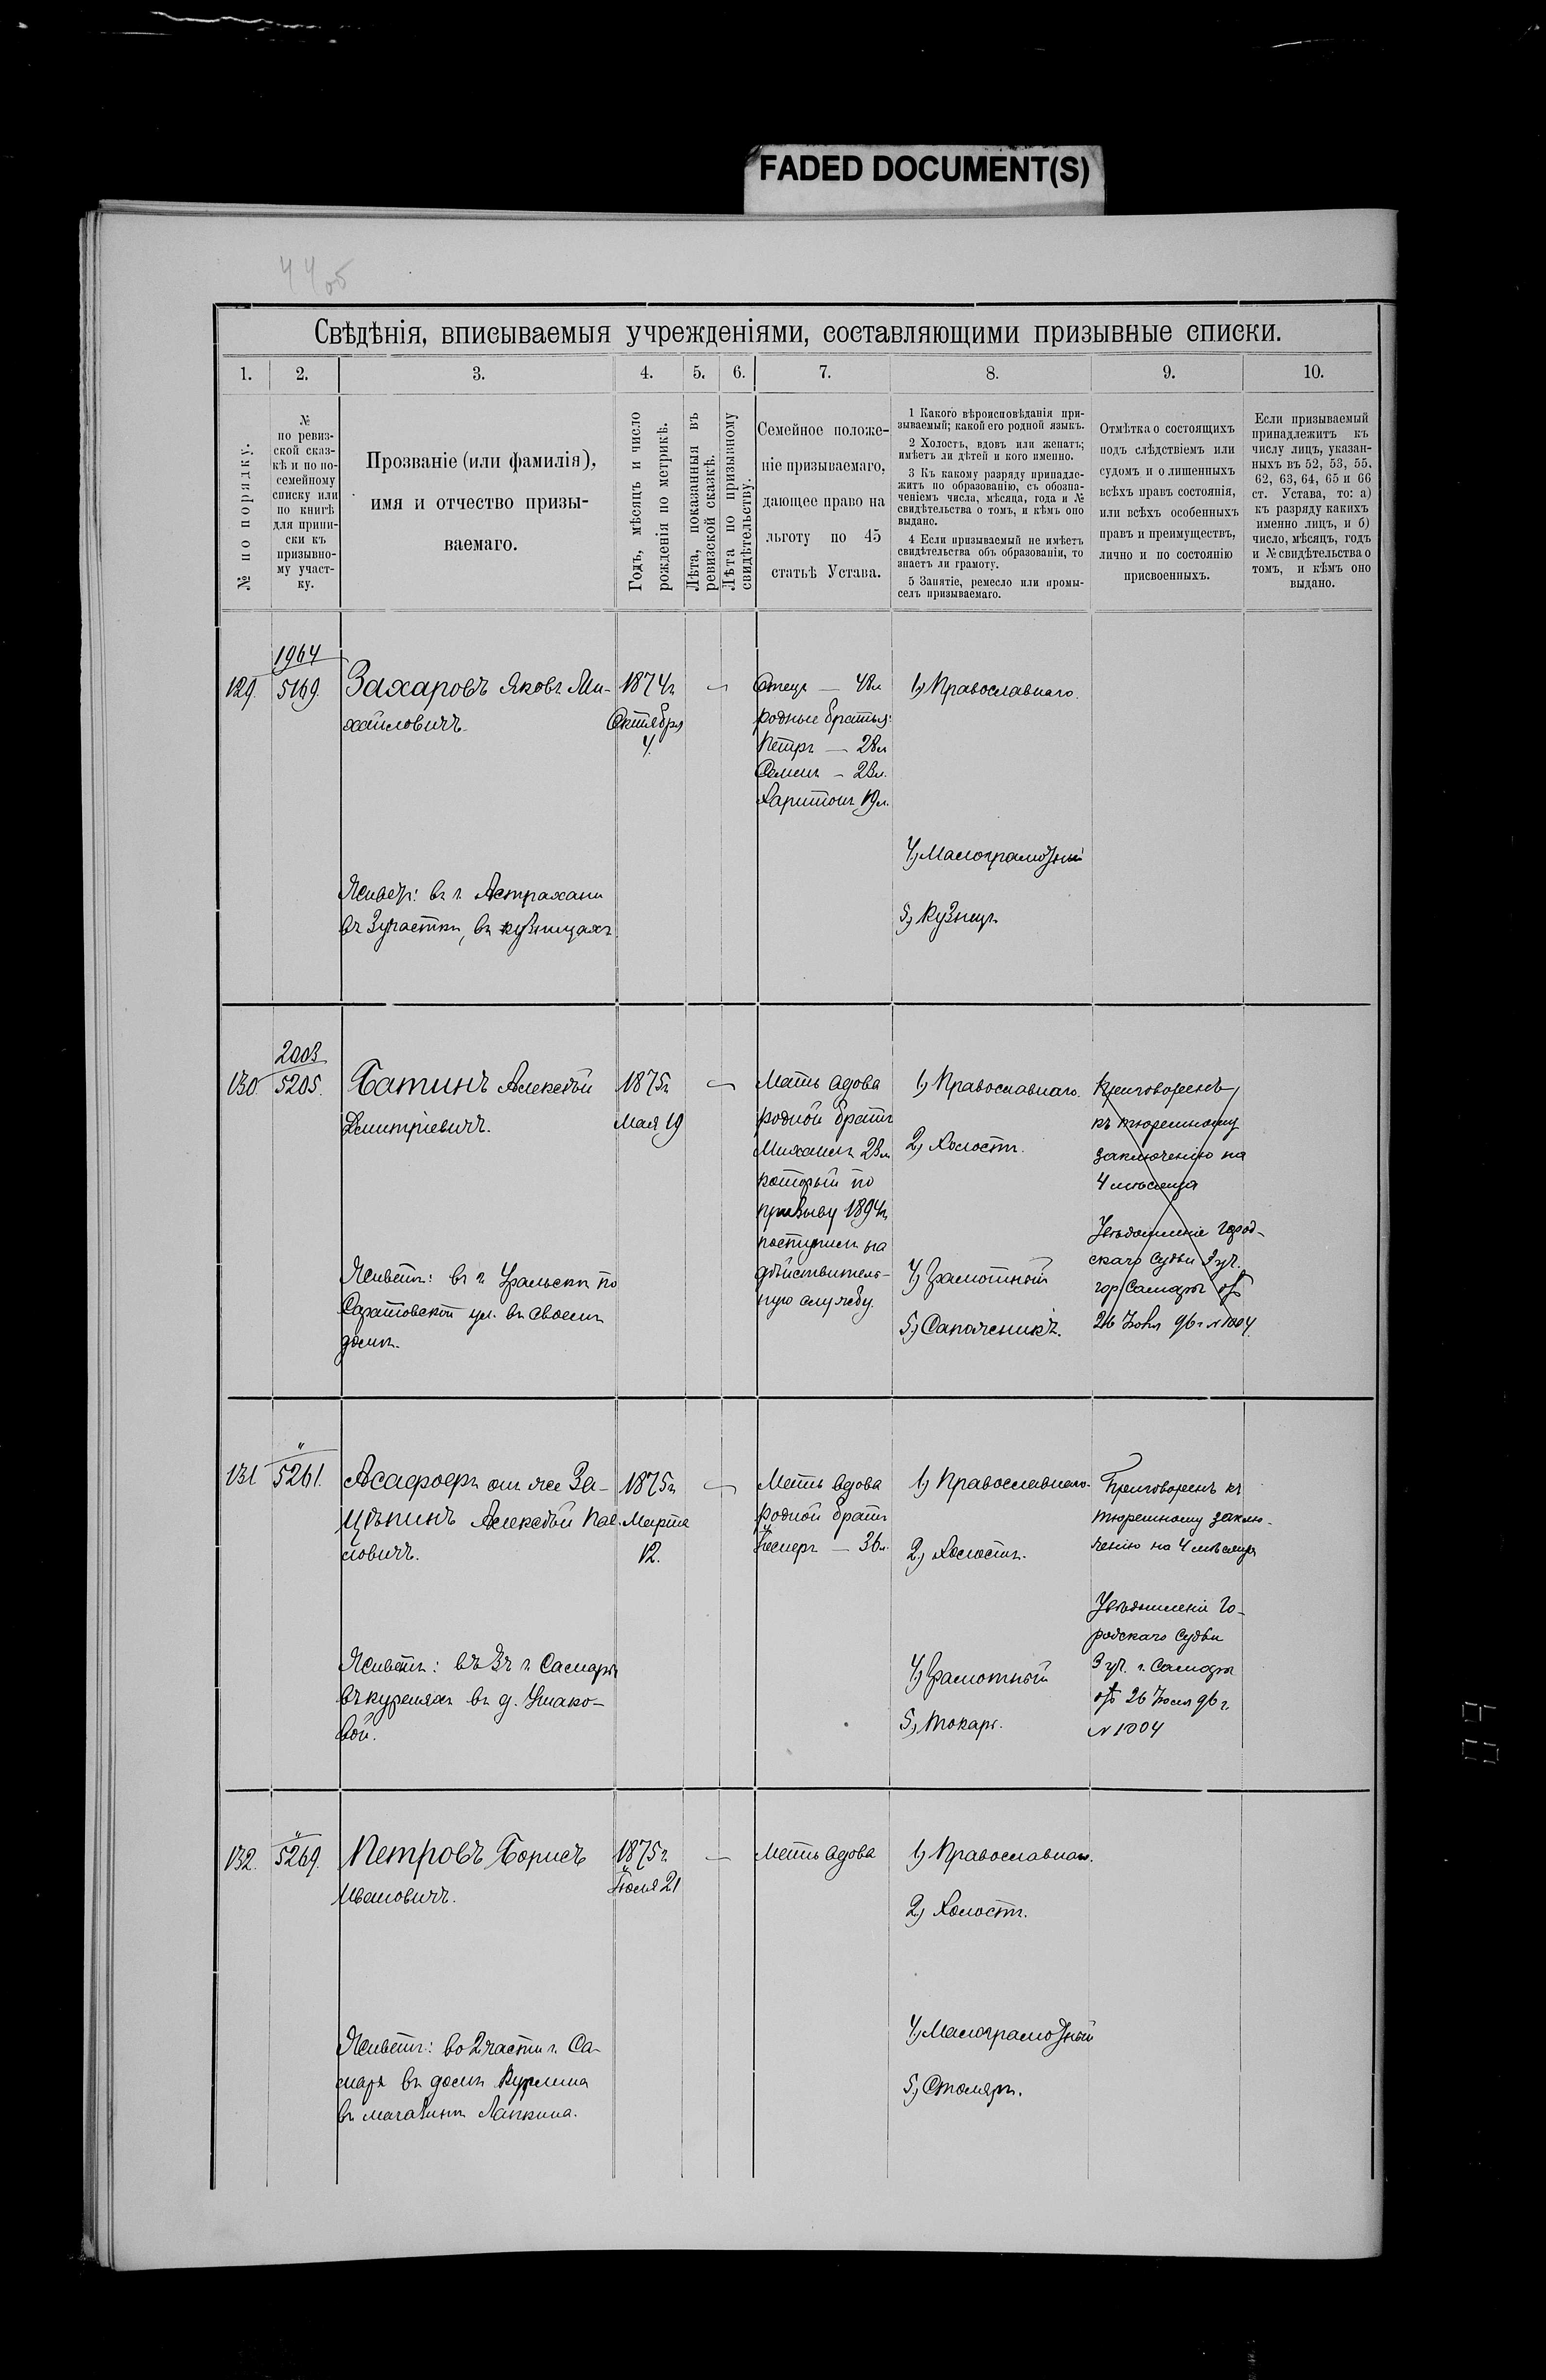 FADED DOCUMENT(S)
44об
Свѣдѣнія, вписываемыя учрежденіями, составляющими призывные списки.
1. 2. 3. 4. 5. 6. 7. 8. 9. 10.
№ по порядку.
№
по ревиз-
ской сказ-
кѣ и по по-
семейному
списку или
по книгѣ
для припи-
ски къ
призывно-
му участ-
ку.
Прозваніе (или фамилія),
имя и отчество призы-
ваемаго.
Годъ, мѣсяцъ и число
рожденія по метрикѣ.
Лѣта, показанныя въ
ревизской сказкѣ.
Лѣта по призывному
свидѣтельству.
Семейное положе-
ніе призываемаго,
дающее право на
льготу по 45
статьѣ Устава.
1 Какого вѣроисповѣданія при-
зываемый; какой его родной языкъ.
2 Холостъ, вдовъ или женатъ;
имѣетъ ли дѣтей и кого именно.
3 Къ какому разряду принадле-
житъ по образованію, съ обозна-
ченіемъ числа, мѣсяца, года и №
свидѣтельства о томъ, и кѣмъ оно
выдано.
4 Если призываемый не имѣетъ
свидѣтельства объ образованіи, то
знаетъ ли грамоту.
5 Занятіе, ремесло или промы-
селъ призываемаго.
Отмѣтка о состоящихъ
подъ слѣдствіемъ или
судомъ и о лишенныхъ
всѣхъ правъ состоянія,
или всѣхъ особенныхъ
правъ и преимуществъ,
лично и по состоянію
присвоенныхъ.
Если призываемый
принадлежитъ къ
числу лицъ, указан-
ныхъ въ 52, 53, 55,
62, 63, 64, 65 и 66
ст. Устава, то: а)
къ разряду какихъ
именно лицъ, и б)
число, мѣсяцъ, годъ
и № свидѣтельства о
томъ, и кѣмъ оно
выдано.
129.
1964
5169.
Захаровъ Яковъ Ми-
хайловичъ.
Живетъ: въ г. Астрахани
въ 3 участкѣ, въ кузницахъ
1874г.
Октября
4.
—
Отецъ — 48л
родные братья:
Петръ — 28л
Семенъ — 23л.
Харитонъ 19л.
1) Православнаго.
4) Малограмотный
5) Кузнецъ
130.
2003
5205.
Батинъ Алексѣй
Дмитріевичъ.
Живетъ: въ г. Уральскѣ по
Саратовской ул. въ своемъ
домѣ.
1875г
Мая 19
—
Мать вдова
родной братъ
Михаилъ 23л
который по
призыву 1894г.
поступилъ на
дѣйствитель-
ную службу.
1) Православнаго.
2) Холостъ.
4) Грамотный
5) Сапожникъ.
Приговоренъ
къ тюремному
заключенію на
4 мѣсяца
Увѣдомленіе Город-
скаго Судьи 3 уч.
гор. Самары отъ
26 Іюля 96 г. № 1004.
131
"
5261.
Асафовъ онъ же За-
цѣпинъ Алексѣй Пав-
ловичъ.
Живетъ: въ 3ч г. Самары
въ курмяхъ въ д. Ушако-
вой.
1875г
Марта
12.
—
Мать вдова
родной братъ
— 36л.
1) Православнаго.
2) Холостъ.
4) Грамотный
5) Токарь.
Приговоренъ къ
тюремному заклю-
ченію на 4 мѣсяца
Увѣдомленіе Го-
родскаго Судьи
3 уч. г. Самары
отъ 26 Іюля 96 г.
№ 1004
132.
"
5269.
Петровъ Борисъ
Ивановичъ.
Живетъ: во 2 части г. Са-
мары въ домѣ Курлина
въ магазинѣ Лапкина.
1875г.
Іюля 21
—
Мать вдова
1) Православнаго.
2) Холостъ.
4) Малограмотный
5) Столяръ.